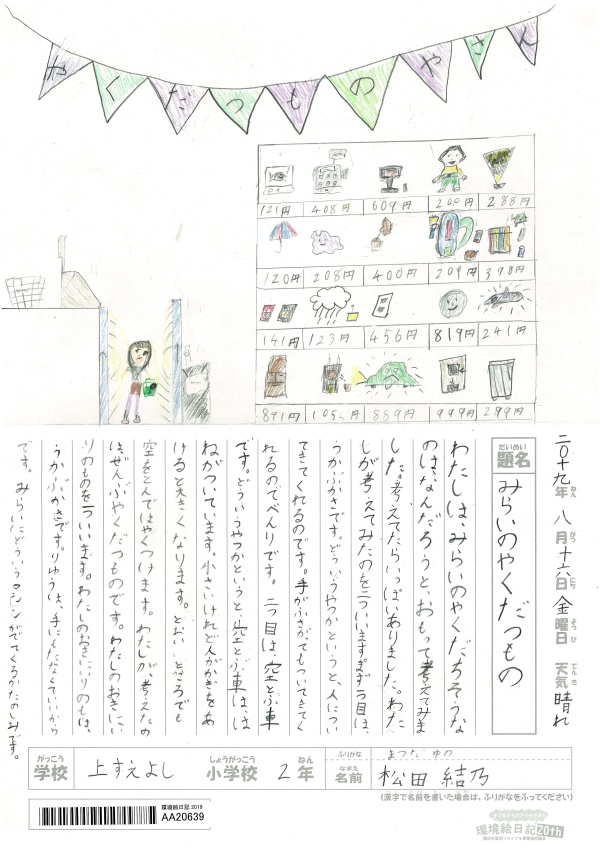 やくだつものやさん
121円 408円 609円 200円 288円
120円 208円 400円 209円 398円
141円 123円 456円 819円 241円
891円 105円 889円 999円 299円
二〇十九年 八月十六日 金曜日 天気 晴れ
ねん がつ にち ようび てんき
だいめい
題名 みらいのやくだつもの
わたしは、みらいのやくだちそうな
のは、なんだろうと、おもって考えてみま
した。考えてたらいっぱいありました。わた
しが考えてみたのを二ついいますまず一つ目は、
うかぶかさです。どういうやつかというと、人につい
てきてくれるのです。手がふさがってもついてきてく
れるのでべんりです。二つ目は、空とぶ車
です。どういうやつかというと、空とぶ車は、は
ねがついています。小さいけれど人がかぎをあ
けると大きくなります。とおいところでも
空をとんではやくつけます。わたしが、考えたの
は、ぜんぶやくだつものです。わたしのおきにい
りのものをいいます。わたしのおきにいりのものは、
うかぶかさです。りゆうは、手にもたなくていいから
です。みらいにどういうマシンがでてくるかたのしみです。
がっこう しょうがっこう ねん ふりがな まつだ ゆの
学校 上すえよし 小学校 2年 なまえ 名前 松田 結乃
(漢字で名前を書いた場合は、ふりがなをふってください)
環境絵日記2019
AA20639
環境絵日記20th